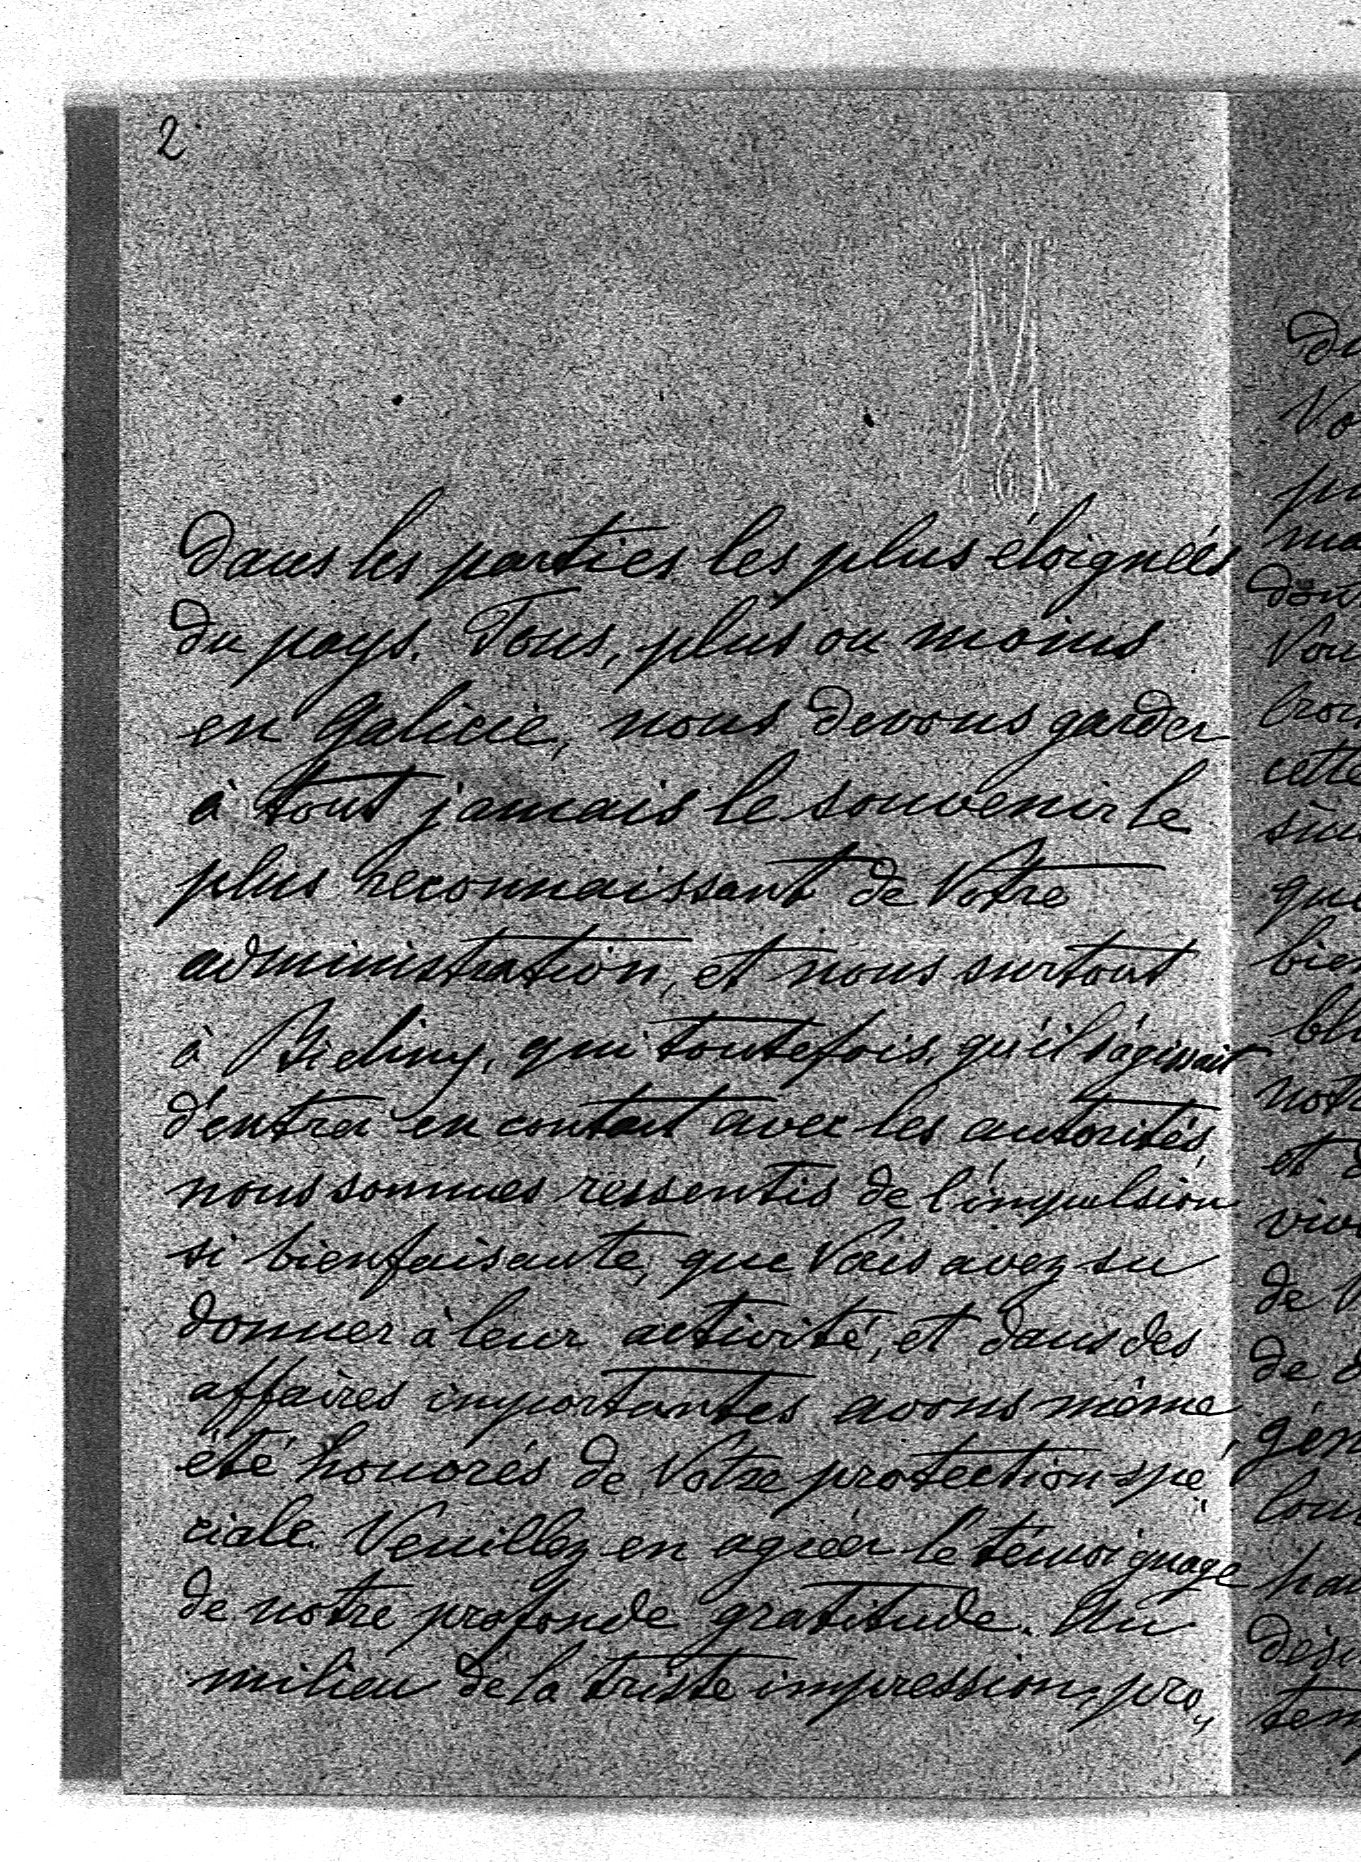 2
dans les parties les plus éloignées
du pays. Tous, plus ou moins
en Galicie, nous devons garder
à tout jamais le souvenir le
plus reconnaissant de Votre
administration, et nous surtout
à qui toutefois, qu'il s'agissait
d'entrer en contact avec les autorités,
nous sommes ressentis de l'impulsion
si bienfaisante, que Vous avez su
donner à leur activité, et dans des
affaires importantes avons même
été honorés de Votre protection spé
ciale. Veuillez en agréer le témoignage
de notre profonde gratitude. Au
milieu de la triste impression, pro